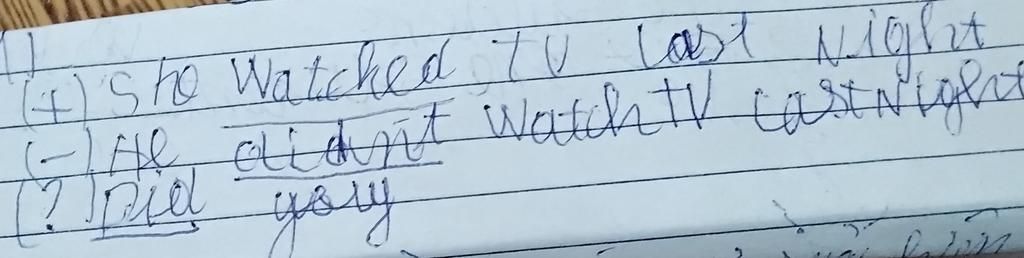 1)
(+) She Watched TV last Night
(-) He didn't Watch TV last Night
(?) Did you